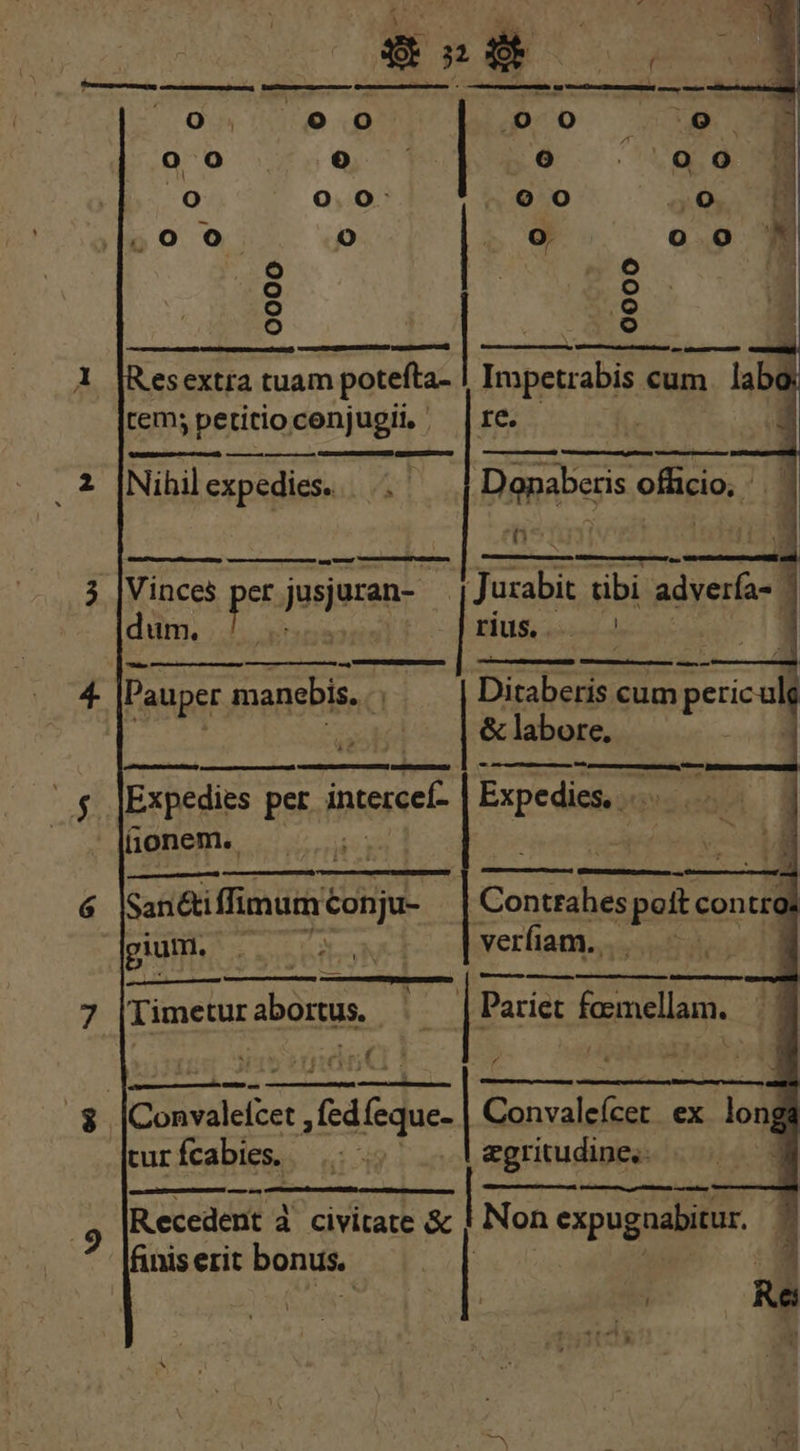 32
o o o
o o o
o o o
o o o
oooo
1 Res extra tuam potesta-
tem; petitio conjugii.
2 Nihil expedies.
3 Vinces per jusjuran-
dum.
4 Pauper manebis.
5 Expedies per intercef-
sionem.
6 Sanctissimum conju-
gium.
7 Timetur abortus.
8 Convalescet, sed seque-
tur scabies.
9 Recedent à civitate &
finis erit bonus.
o o o
o o o
o o o
o o o
oooo
Impetrabis cum labo
re.
Donaberis officio.
Jurabit tibi adversa-
rius.
Ditaberis cum periculo
& labore.
Expedies.
Contrahes post contro-
versiam.
Pariet fœmellam.
Convalescet ex longa
ægritudine.
Non expugnabitur.
Res